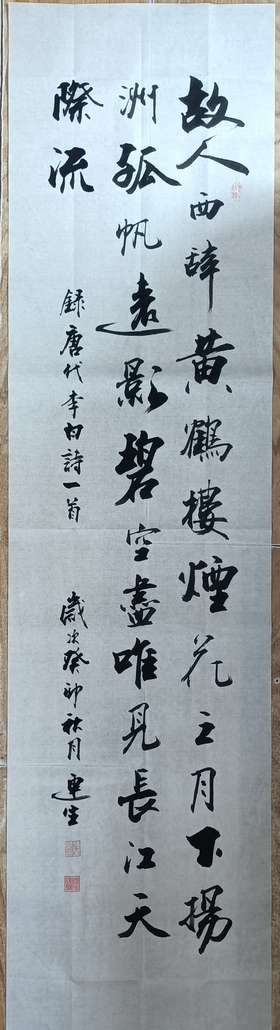 故人西辞黄鶴樓煙花三月下揚
洲孤帆遠影碧空盡唯見長江天
際流
録唐代李白詩一首
歲次癸卯秋月建生